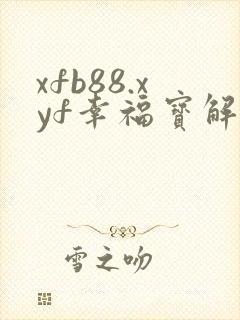 xfb88.x
yf幸福寳解
雪之吻